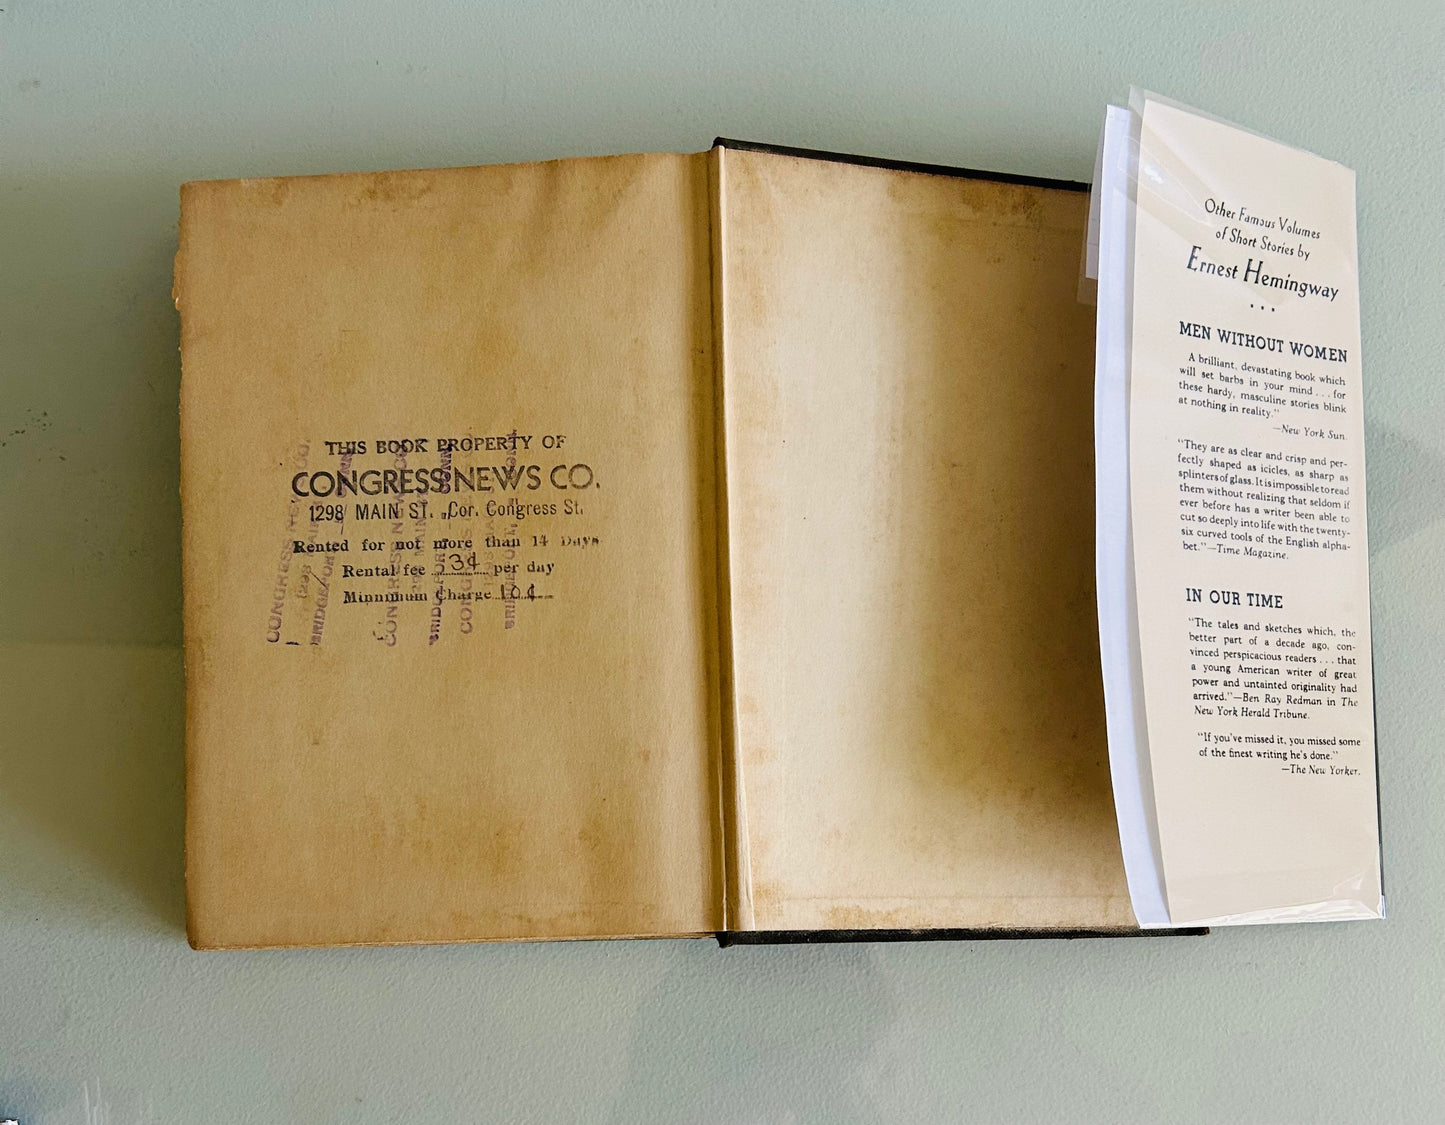 THIS BOOK PROPERTY OF
CONGRESS NEWS CO.
1298 MAIN ST. Cor. Congress St.
Rented for not more than 14 Days
Rental fee 3¢ per day
Minnimum Charge 10¢
CONGRESS NEWS CO.
1298 MAIN
BRIDGEPORT
CONGRESS NEWS CO
BRIDGEPORT
Other Famous Volumes
of Short Stories by
Ernest Hemingway
...
MEN WITHOUT WOMEN
A brilliant, devastating book which
will set barbs in your mind . . . for
these hardy, masculine stories blink
at nothing in reality."
—New York Sun.
"They are as clear and crisp and per-
fectly shaped as icicles, as sharp as
splinters of glass. It is impossible to read
them without realizing that seldom if
ever before has a writer been able to
cut so deeply into life with the twenty-
six curved tools of the English alpha-
bet."—Time Magazine.
IN OUR TIME
"The tales and sketches which, the
better part of a decade ago, con-
vinced perspicacious readers . . . that
a young American writer of great
power and untainted originality had
arrived."—Ben Ray Redman in The
New York Herald Tribune.
"If you've missed it, you missed some
of the finest writing he's done."
—The New Yorker.